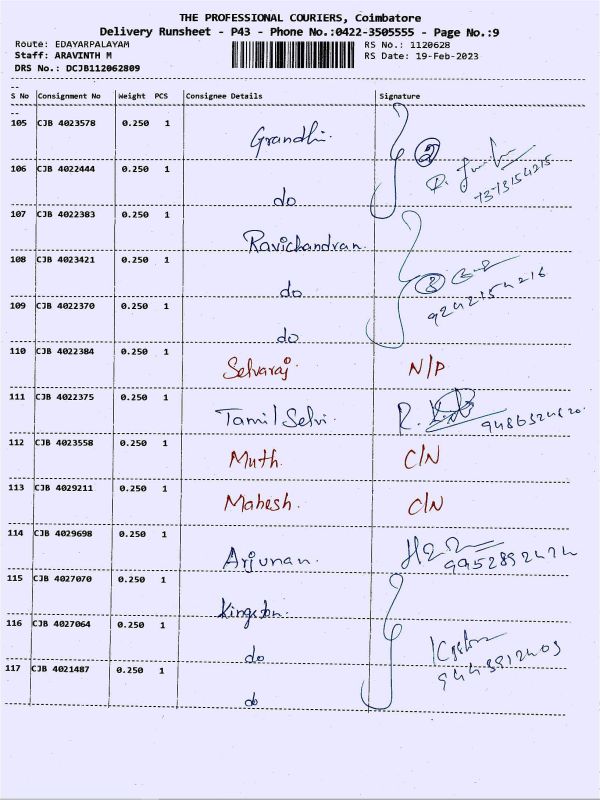 THE PROFESSIONAL COURIERS, Coimbatore
Delivery Runsheet - P43 - Phone No.:0422-3505555 - Page No.:9
Route: EDAYARPALAYAM RS No.: 1120628
Staff: ARAVINTH M RS Date: 19-Feb-2023
DRS No.: DCJB112062809
S No Consignment No Weight PCS Consignee Details Signature
105 CJB 4023578 0.250 1 Grandhi. 2
106 CJB 4022444 0.250 1 do
107 CJB 4022383 0.250 1 Ravichandran.
108 CJB 4023421 0.250 1 do 3
9242154216
109 CJB 4022370 0.250 1 do
110 CJB 4022384 0.250 1 Selvaraj. N/P
111 CJB 4022375 0.250 1 Tamil Selvi. R.
112 CJB 4023558 0.250 1 Muth. C/N
113 CJB 4029211 0.250 1 Mahesh. C/N
114 CJB 4029698 0.250 1 Arjunan.
115 CJB 4027070 0.250 1 Kingston.
116 CJB 4027064 0.250 1 do
117 CJB 4021487 0.250 1 do